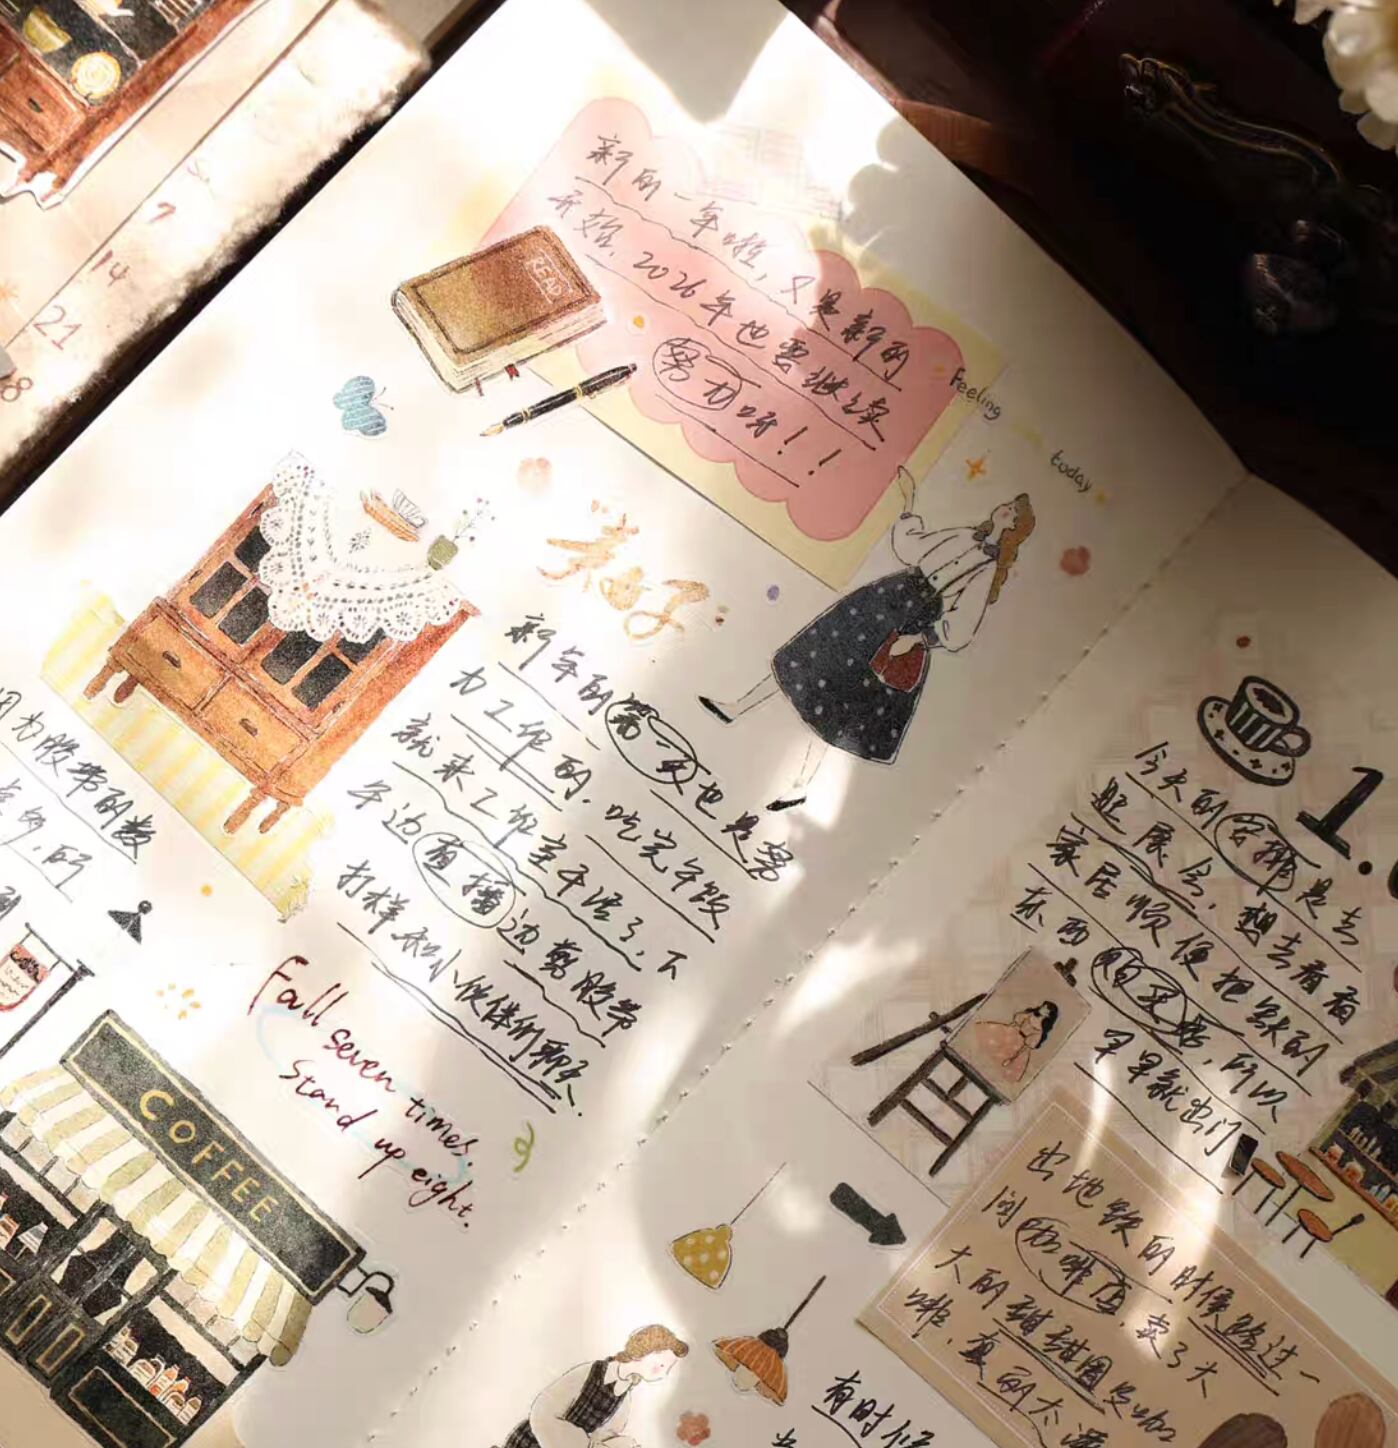 新的一年啦，又是新的
开始，2026年也要继续
努力呀！！
READ
Feeling
today
美好
新年的第一天也是努
力工作的，吃完午饭
就来工作室干活了，下
午边直播边剪胶带
打样和小伙伴们聊天.
因为胶带的数
Fall seven times.
Stand up eight.
COFFEE
7
14
21
1.
今天的安排是去
逛展会，想去看看
家居顺便把缺的
东西购买齐，所以
早早就出门
出地铁的时候路过一
间咖啡店，卖了大
大的甜甜圈
啡，
有时候